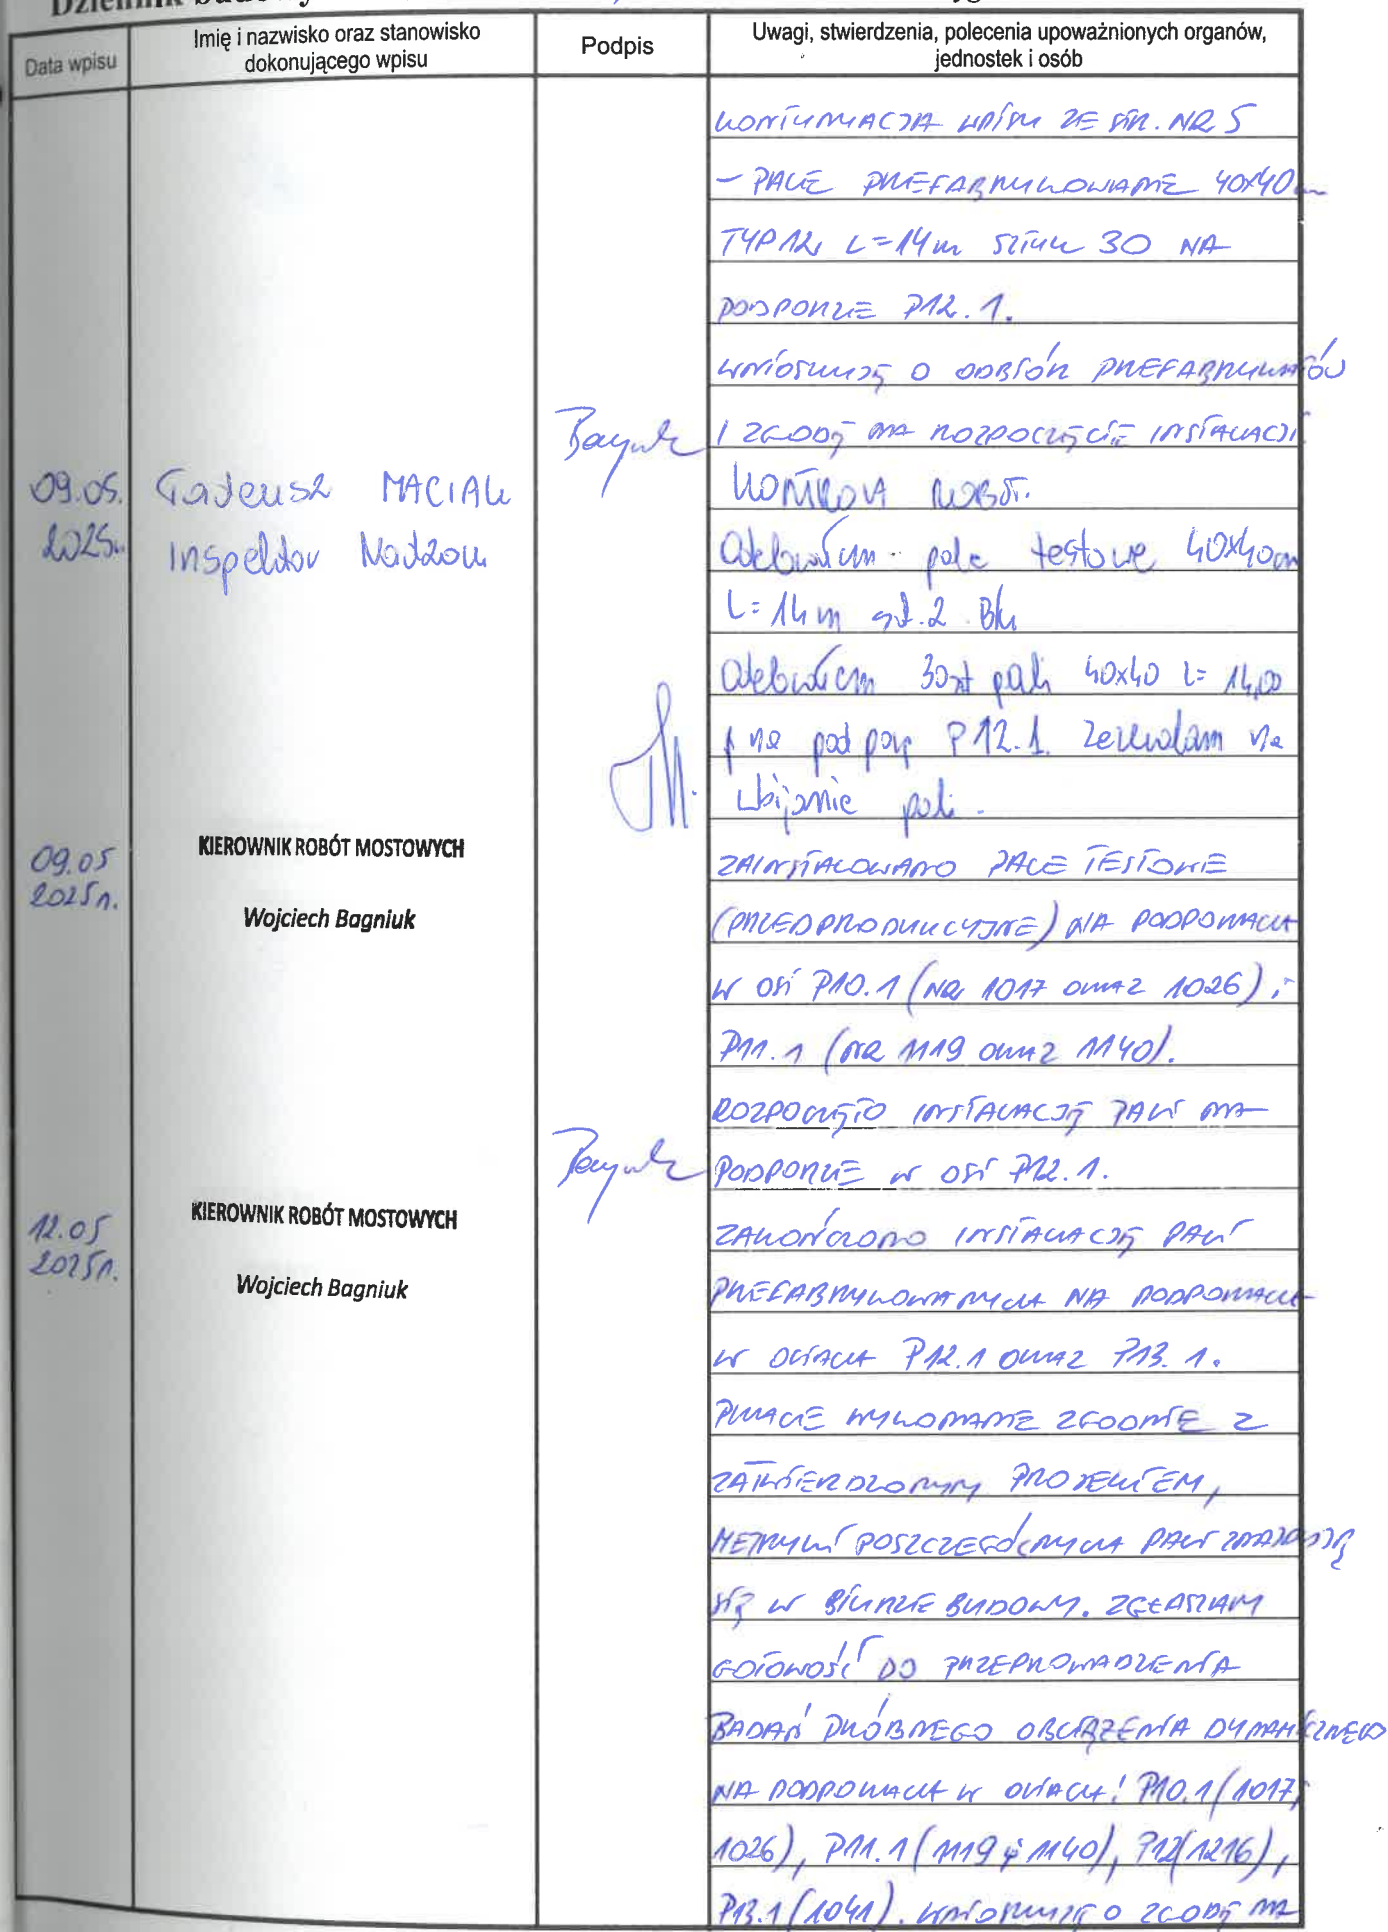 Dziennik budowy
Data wpisu
Imię i nazwisko oraz stanowisko dokonującego wpisu
Podpis
Uwagi, stwierdzenia, polecenia upoważnionych organów, jednostek i osób
KONTYNUACJA WPISU ZE STR. NR 5
- PALE PREFABRYKOWANE 40x40cm
TYP 12, L=14m SZTUK 30 NA
PODPORZE P12.1.
WNIOSKUJĘ O ODBIÓR PREFABRYKATÓW
I ZGODĘ NA ROZPOCZĘCIE INSTALACJI
09.05.2025r. Tadeusz MACIAK
Inspektor Nadzoru
KONTROLA ROBÓT.
Odebrałem pale testowe 40x40cm
L=14m szt.2
Odebrałem 30szt pali 40x40 L=14,00
na podporę P12.1. Zezwalam na
wbijanie pali.
09.05 2025r.
KIEROWNIK ROBÓT MOSTOWYCH
Wojciech Bagniuk
ZAINSTALOWANO PALE TESTOWE
(PRZEDPRODUKCYJNE) NA PODPORACH
W OSI P10.1 (NR 1017 ORAZ 1026) i
P11.1 (NR 1119 ORAZ 1140).
ROZPOCZĘTO INSTALACJĘ PALI NA
PODPORZE W OSI P12.1.
12.05 2025r.
KIEROWNIK ROBÓT MOSTOWYCH
Wojciech Bagniuk
ZAKOŃCZONO INSTALACJĘ PALI
PREFABRYKOWANYCH NA PODPORACH
W OSIACH P12.1 ORAZ P13.1.
PRACE WYKONANE ZGODNIE Z
ZATWIERDZONYM PROJEKTEM,
METRYKI POSZCZEGÓLNYCH PALI ZNAJDUJĄ
SIĘ W BIURZE BUDOWY. ZGŁASZAM
GOTOWOŚĆ DO PRZEPROWADZENIA
BADAŃ PRÓBNEGO OBCIĄŻENIA DYNAMICZNEGO
NA PODPORACH W OSIACH: P10.1 (1017,
1026), P11.1 (1119 i 1140), P12(1216),
P13.1 (1041). WNIOSKUJĘ O ZGODĘ NA